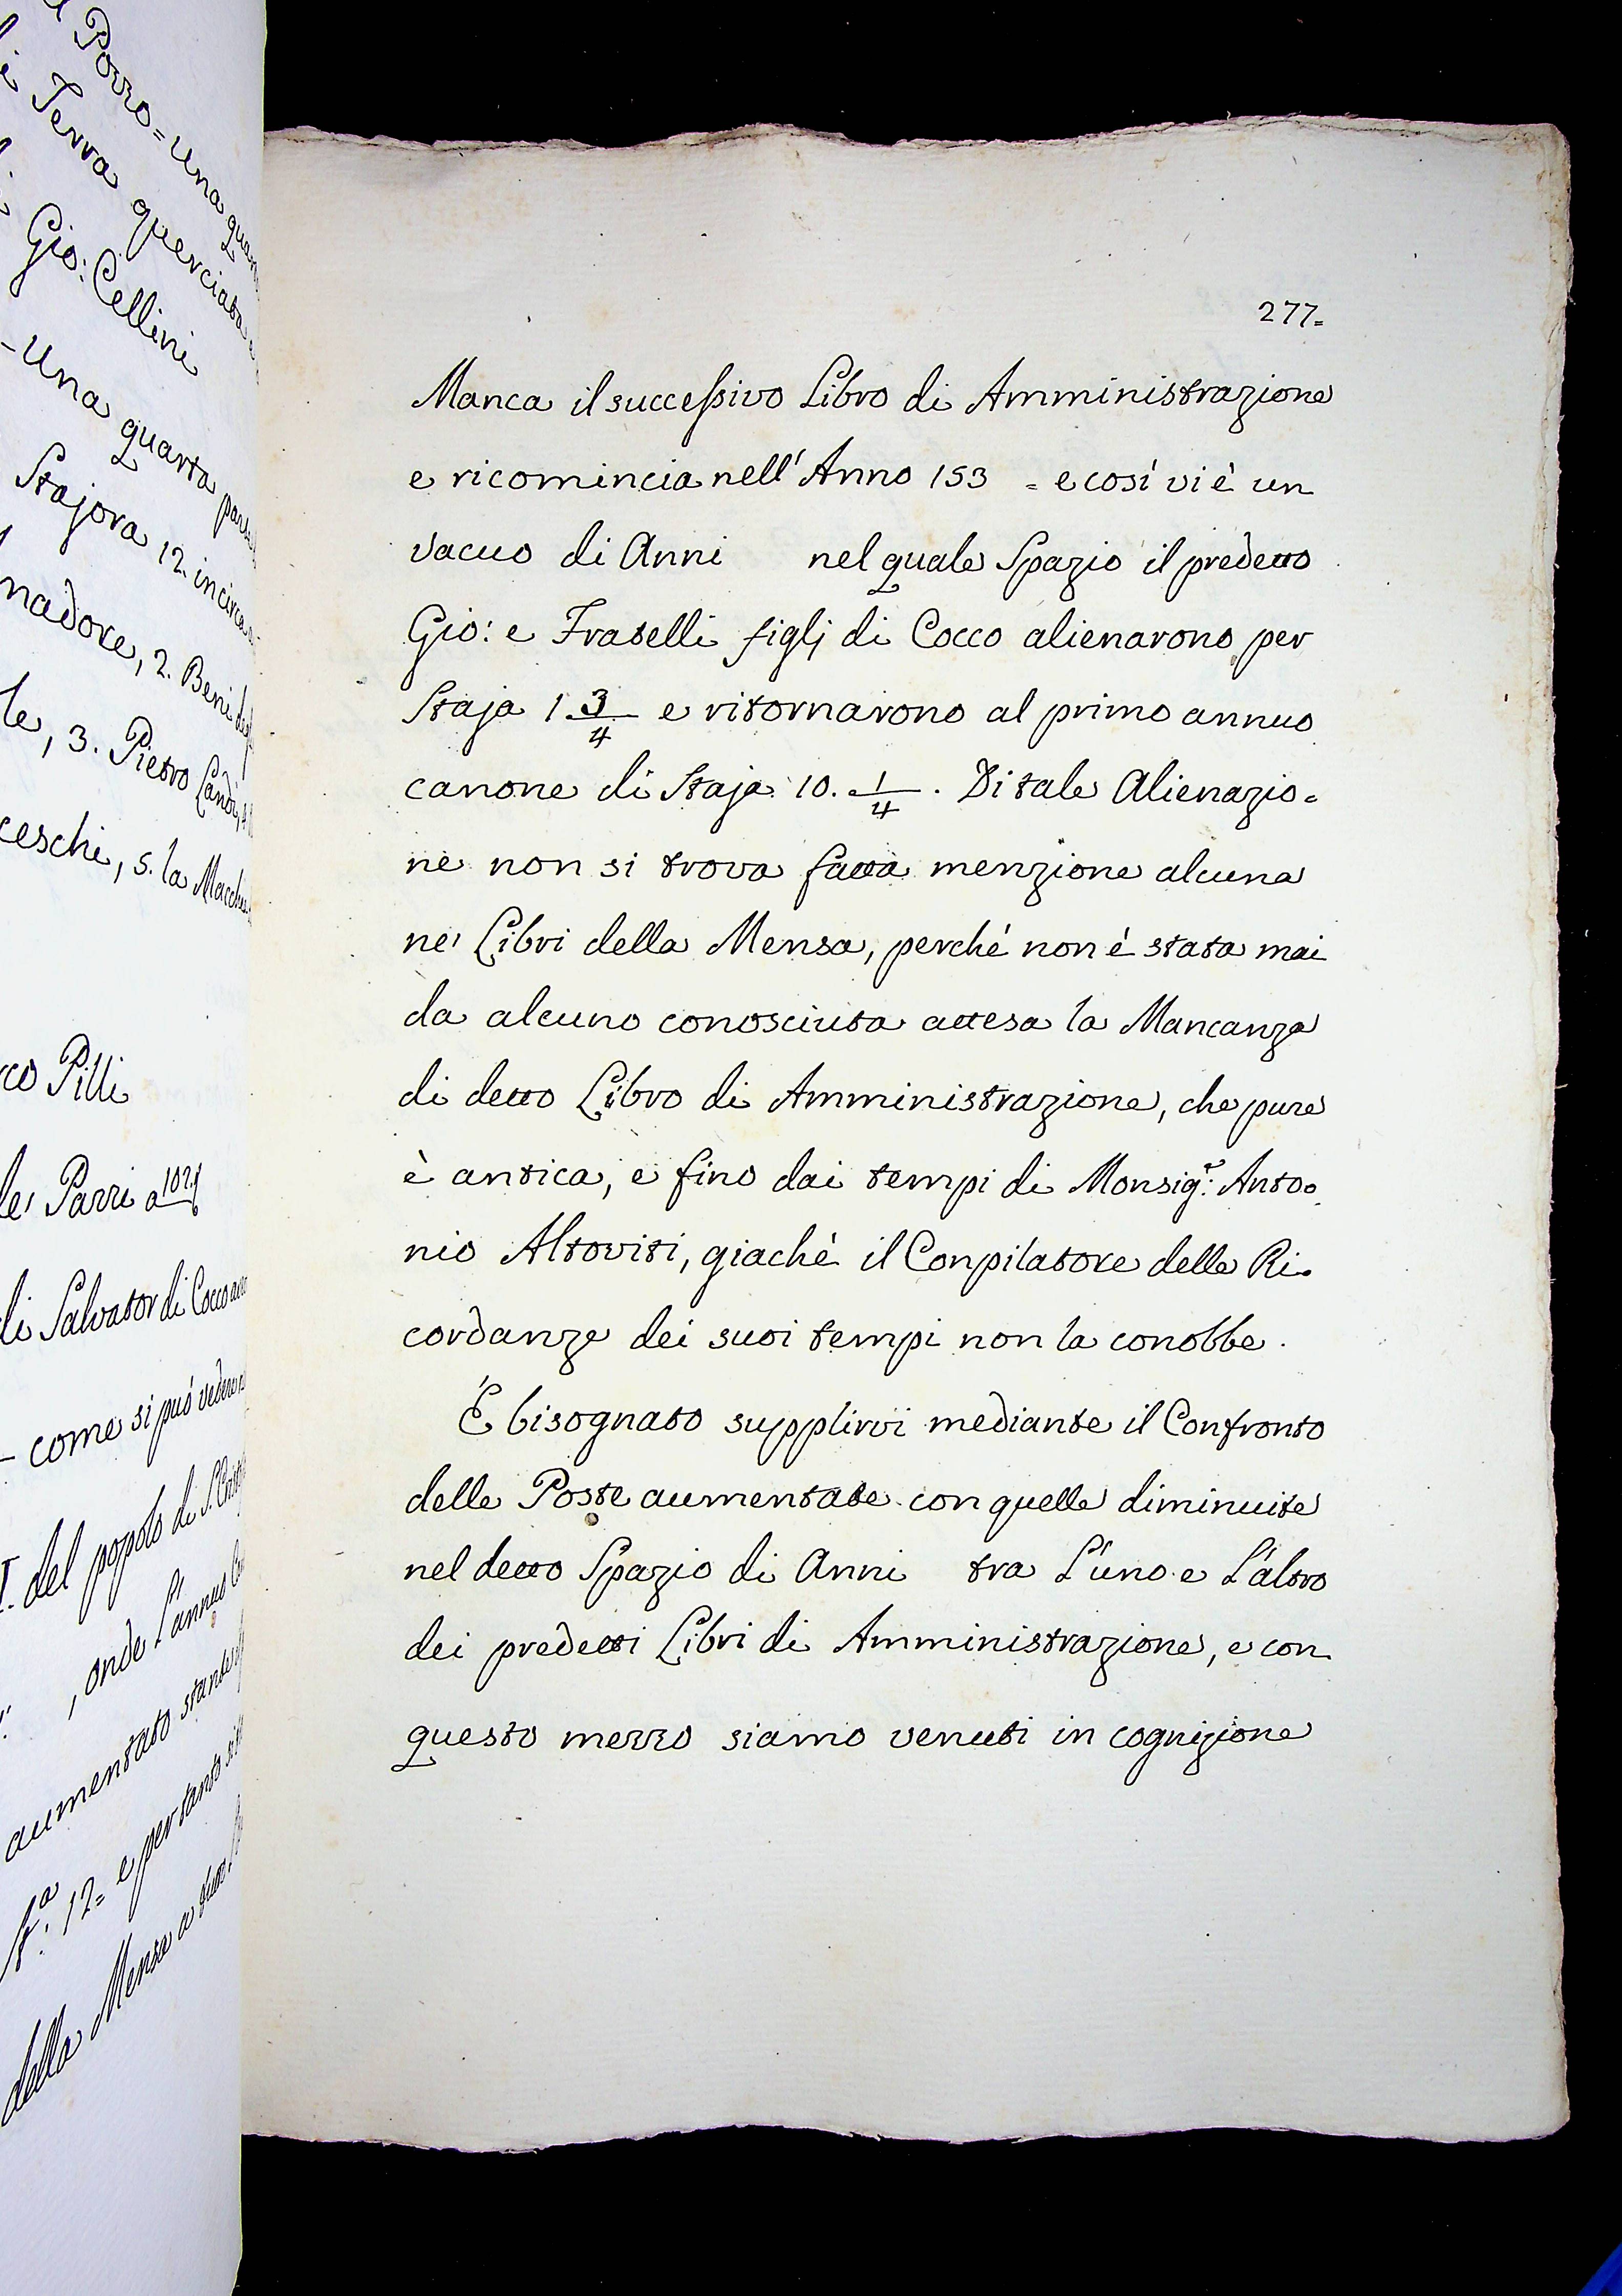 Porro = una qua
Terra querciata
Gio: Cellini
- Una quarta par
Stajora 12 incirca
nadore, 2. Beni
le, 3. Pietro Landi,
ceschi, 5. la Macchi
co Pilli
de' Parri a 102
di Salvator di Cocco
- come si può vedere
del popolo di S. Crist
, onde L'annuo
aumentato stante
12= e pertanto
della Mensa a
277=
Manca il successivo Libro di Amministrazione
e ricomincia nell'Anno 153 = e così vi è un
vacuo di Anni nel quale Spazio il predetto
Gio: e Fratelli figlj di Cocco alienarono per
Staja 1 3/4 e ritornarono al primo annuo
canone di Staja 10. 1/4. Di tale Alienazio=
ne non si trova fatta menzione alcuna
ne' Libri della Mensa, perchè non è stata mai
da alcuno conosciuta attesa la Mancanza
di detto Libro di Amministrazione, che pure
è antica, e fino dai tempi di Monsig.r Anto=
nio Altoviti, giachè il Conpilatore delle Ri=
cordanze dei suoi tempi non la conobbe.
È bisognato supplirvi mediante il Confronto
delle Poste aumentate con quelle diminuite
nel detto Spazio di Anni tra L'uno e L'altro
dei predetti Libri di Amministrazione, e con
questo mezzo siamo venuti in cognizione